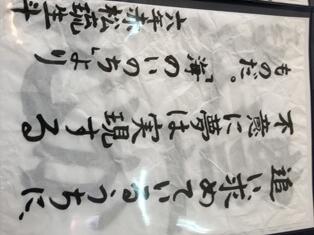 追い求めているうちに、
不意に夢は実現する
ものだ。「海のいのち」より
六年赤松琉生斗